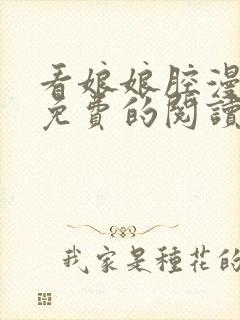 看娘娘腔漫
免費的閱讀
我家是種花的